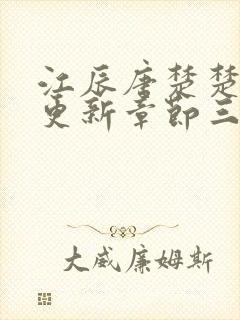 江辰唐楚楚
更新章节三
大威廉姆斯